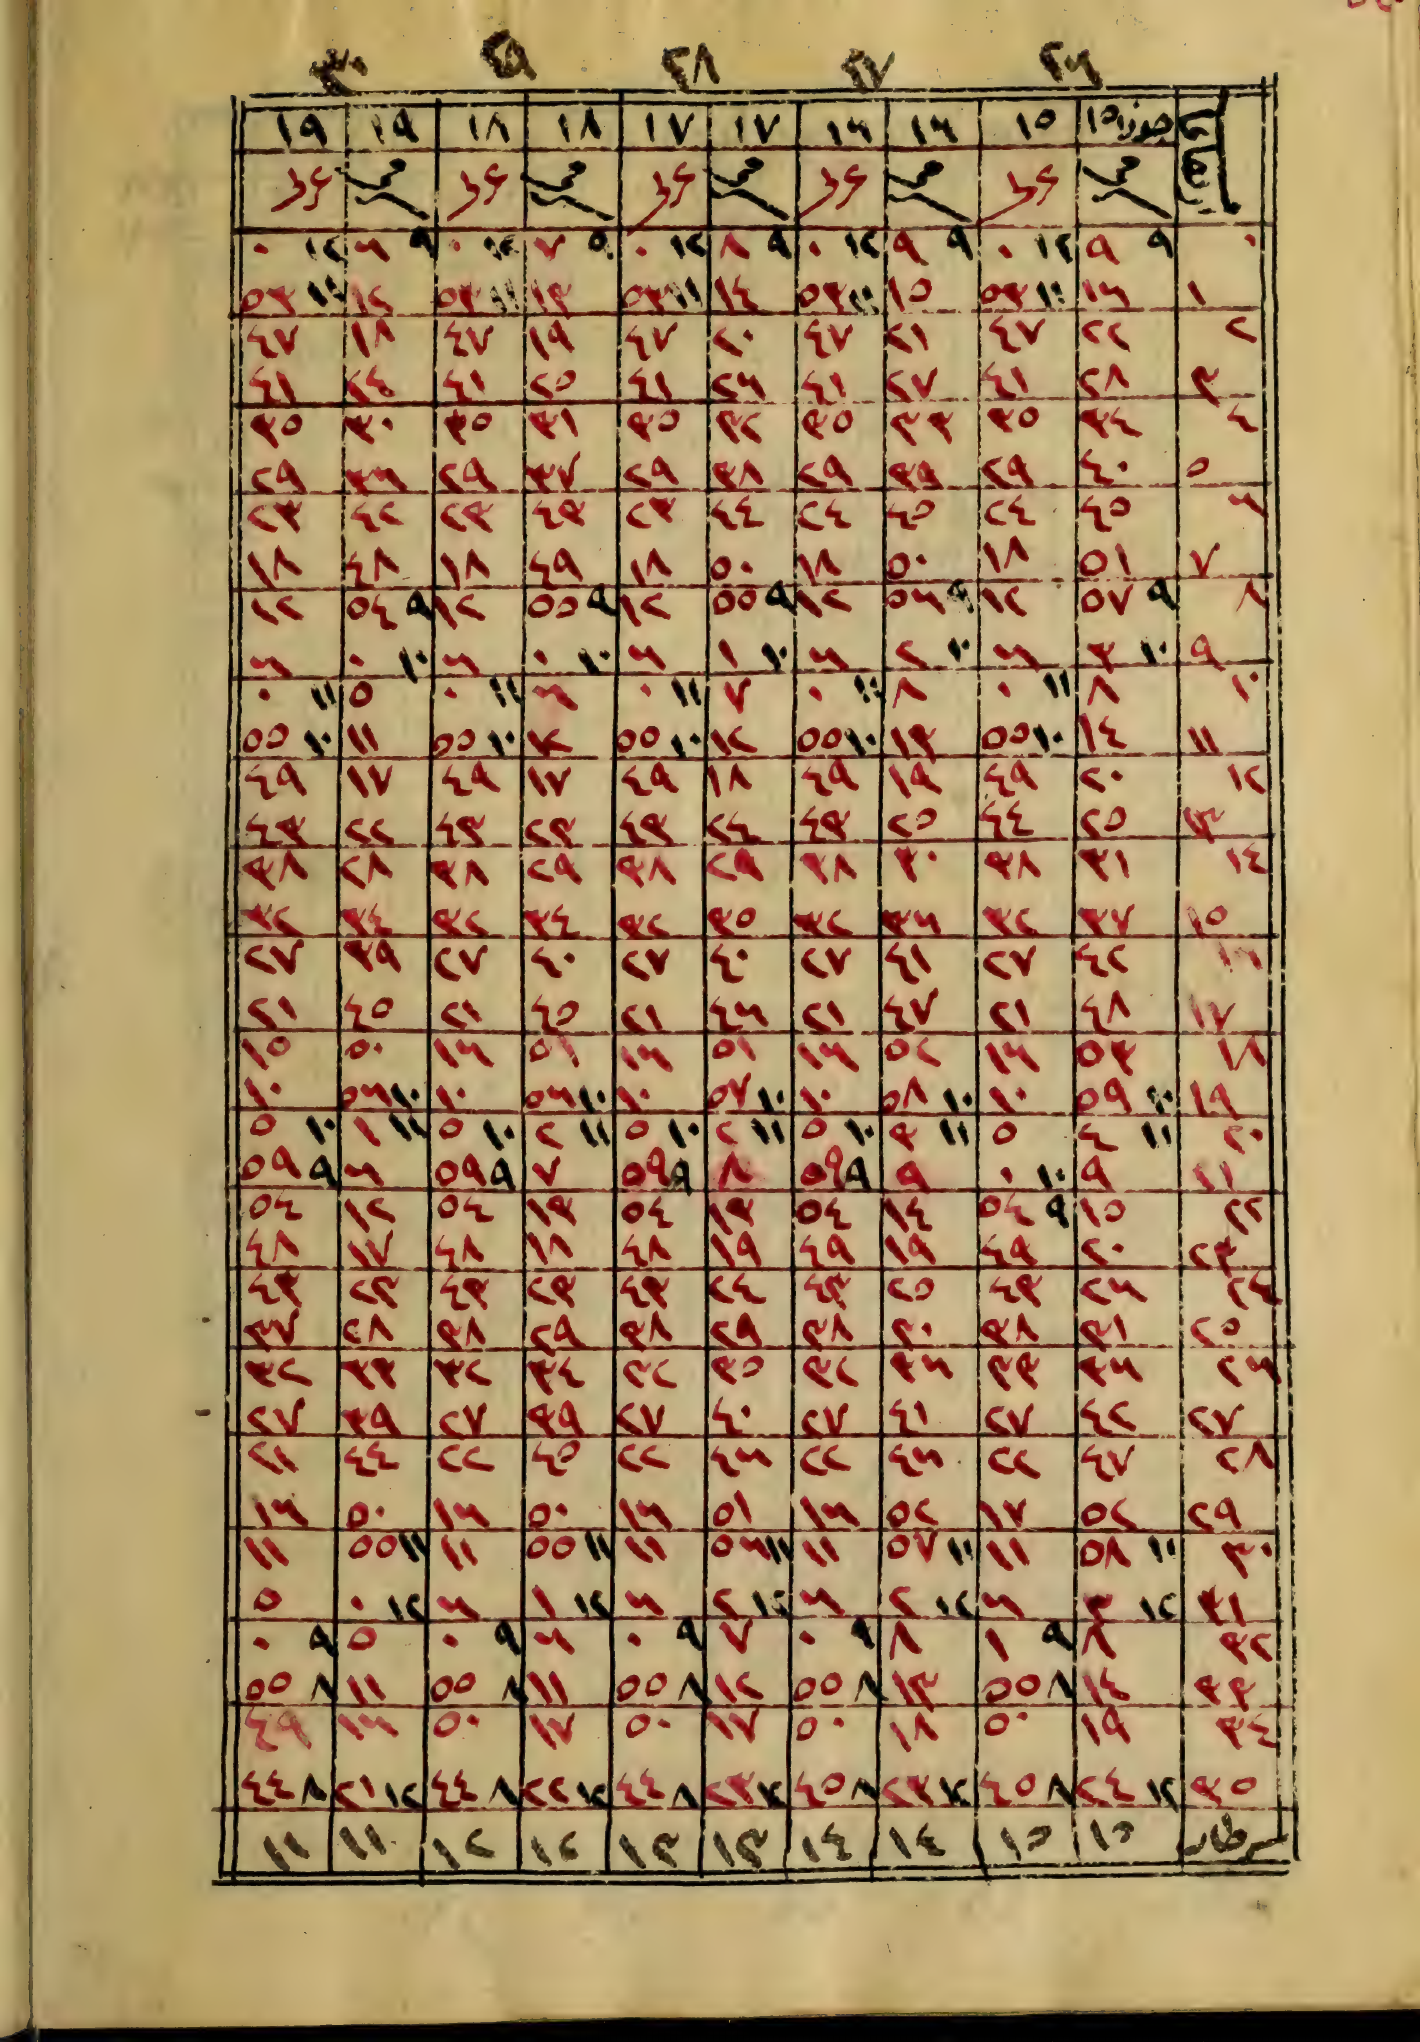 ٢٦ ٢٧ ٢٨ ٢٩ ٣٠
جوزا ١٥ ١٥ ١٦ ١٦ ١٧ ١٧ ١٨ ١٨ ١٩ ١٩
٠ ٩ ٩ ١٢ ٠ ٩ ٩ ١٢ ٠ ٩ ٨ ١٢ ٠ ٩ ٧ ١٢ ٠ ٩ ٦ ١٢ ٠
١ ١٦ ١١ ٥٣ ١٥ ١١ ٥٣ ١٤ ١١ ٥٣ ١٣ ١١ ٥٣ ١٢ ١١ ٥٣
٢ ٢٢ ٤٧ ٢١ ٤٧ ٢٠ ٤٧ ١٩ ٤٧ ١٨ ٤٧
٣ ٢٨ ٤١ ٢٧ ٤١ ٢٦ ٤١ ٢٥ ٤١ ٢٤ ٤١
٤ ٣٤ ٣٥ ٣٣ ٣٥ ٣٢ ٣٥ ٣١ ٣٥ ٣٠ ٣٥
٥ ٤٠ ٢٩ ٣٩ ٢٩ ٣٨ ٢٩ ٣٧ ٢٩ ٣٦ ٢٩
٦ ٤٥ ٢٤ ٤٥ ٢٤ ٤٤ ٢٣ ٤٣ ٢٣ ٤٢ ٢٣
٧ ٥١ ١٨ ٥٠ ١٨ ٥٠ ١٨ ٤٩ ١٨ ٤٨ ١٨
٨ ٩ ٥٧ ١٢ ٩ ٥٦ ١٢ ٩ ٥٥ ١٢ ٩ ٥٥ ١٢ ٩ ٥٤ ١٢
٩ ١٠ ٣ ٦ ١٠ ٢ ٦ ١٠ ١ ٦ ١٠ ٠ ٦ ١٠ ٠ ٦
١٠ ٨ ١١ ٠ ٨ ١١ ٠ ٧ ١١ ٠ ٦ ١١ ٠ ٥ ١١ ٠
١١ ١٤ ١٠ ٥٥ ١٣ ١٠ ٥٥ ١٢ ١٠ ٥٥ ١٢ ١٠ ٥٥ ١١ ١٠ ٥٥
١٢ ٢٠ ٤٩ ١٩ ٤٩ ١٨ ٤٩ ١٧ ٤٩ ١٧ ٤٩
١٣ ٢٥ ٤٤ ٢٥ ٤٣ ٢٤ ٤٣ ٢٣ ٤٣ ٢٢ ٤٣
١٤ ٣١ ٣٨ ٣٠ ٣٨ ٢٩ ٣٨ ٢٩ ٣٨ ٢٨ ٣٨
١٥ ٣٧ ٣٢ ٣٦ ٣٢ ٣٥ ٣٢ ٣٤ ٣٢ ٣٤ ٣٢
١٦ ٤٢ ٢٧ ٤١ ٢٧ ٤٠ ٢٧ ٤٠ ٢٧ ٣٩ ٢٧
١٧ ٤٨ ٢١ ٤٧ ٢١ ٤٦ ٢١ ٤٥ ٢١ ٤٥ ٢١
١٨ ٥٣ ١٦ ٥٢ ١٦ ٥١ ١٦ ٥١ ١٦ ٥٠ ١٥
١٩ ١٠ ٥٩ ١٠ ١٠ ٥٨ ١٠ ١٠ ٥٧ ١٠ ١٠ ٥٦ ١٠ ١٠ ٥٦ ١٠
٢٠ ١١ ٤ ٥ ١١ ٣ ١٠ ٥ ١١ ٢ ١٠ ٥ ١١ ٢ ١٠ ٥ ١١ ١ ١٠ ٥
٢١ ٩ ١٠ ٠ ٩ ٩ ٥٩ ٨ ٩ ٥٩ ٧ ٩ ٥٩ ٦ ٩ ٥٩
٢٢ ١٥ ٩ ٥٤ ١٤ ٥٤ ١٣ ٥٤ ١٣ ٥٤ ١٢ ٥٤
٢٣ ٢٠ ٤٩ ١٩ ٤٩ ١٩ ٤٨ ١٨ ٤٨ ١٧ ٤٨
٢٤ ٢٦ ٤٣ ٢٥ ٤٣ ٢٤ ٤٣ ٢٣ ٤٣ ٢٣ ٤٣
٢٥ ٣١ ٣٨ ٣٠ ٣٨ ٢٩ ٣٨ ٢٩ ٣٨ ٢٨ ٣٧
٢٦ ٣٦ ٣٣ ٣٦ ٣٢ ٣٥ ٣٢ ٣٤ ٣٢ ٣٣ ٣٢
٢٧ ٤٢ ٢٧ ٤١ ٢٧ ٤٠ ٢٧ ٣٩ ٢٧ ٣٩ ٢٧
٢٨ ٤٧ ٢٢ ٤٦ ٢٢ ٤٦ ٢٢ ٤٥ ٢٢ ٤٤ ٢١
٢٩ ٥٢ ١٧ ٥٢ ١٦ ٥١ ١٦ ٥٠ ١٦ ٥٠ ١٦
٣٠ ١١ ٥٨ ١١ ١١ ٥٧ ١١ ١١ ٥٦ ١١ ١١ ٥٥ ١١ ١١ ٥٥ ١١
٣١ ١٢ ٣ ٦ ١٢ ٢ ٦ ١٢ ٢ ٦ ١٢ ١ ٦ ١٢ ٠ ٥
٣٢ ٨ ٩ ١ ٨ ٩ ٠ ٧ ٩ ٠ ٦ ٩ ٠ ٥ ٩ ٠
٣٣ ١٤ ٨ ٥٥ ١٣ ٨ ٥٥ ١٢ ٨ ٥٥ ١١ ٨ ٥٥ ١١ ٨ ٥٥
٣٤ ١٩ ٥٠ ١٨ ٥٠ ١٧ ٥٠ ١٧ ٥٠ ١٦ ٤٩
٣٥ ١٢ ٢٤ ٨ ٤٥ ١٢ ٢٣ ٨ ٤٥ ١٢ ٢٣ ٨ ٤٤ ١٢ ٢٢ ٨ ٤٤ ١٢ ٢١ ٨ ٤٤
سرطان ١٥ ١٥ ١٤ ١٤ ١٣ ١٣ ١٢ ١٢ ١١ ١١